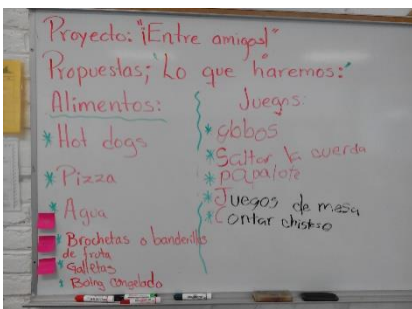 Proyecto: "¡Entre amigos!"
Propuestas; "Lo que haremos:"
Alimentos:
* Hot dogs
* Pizza
* Agua
* Brochetas o banderillas
de fruta
* Galletas
* Boing congelado
Juegos:
* globos
* Saltar la cuerda
* papalote
* Juegos de mesa
* Contar chistes